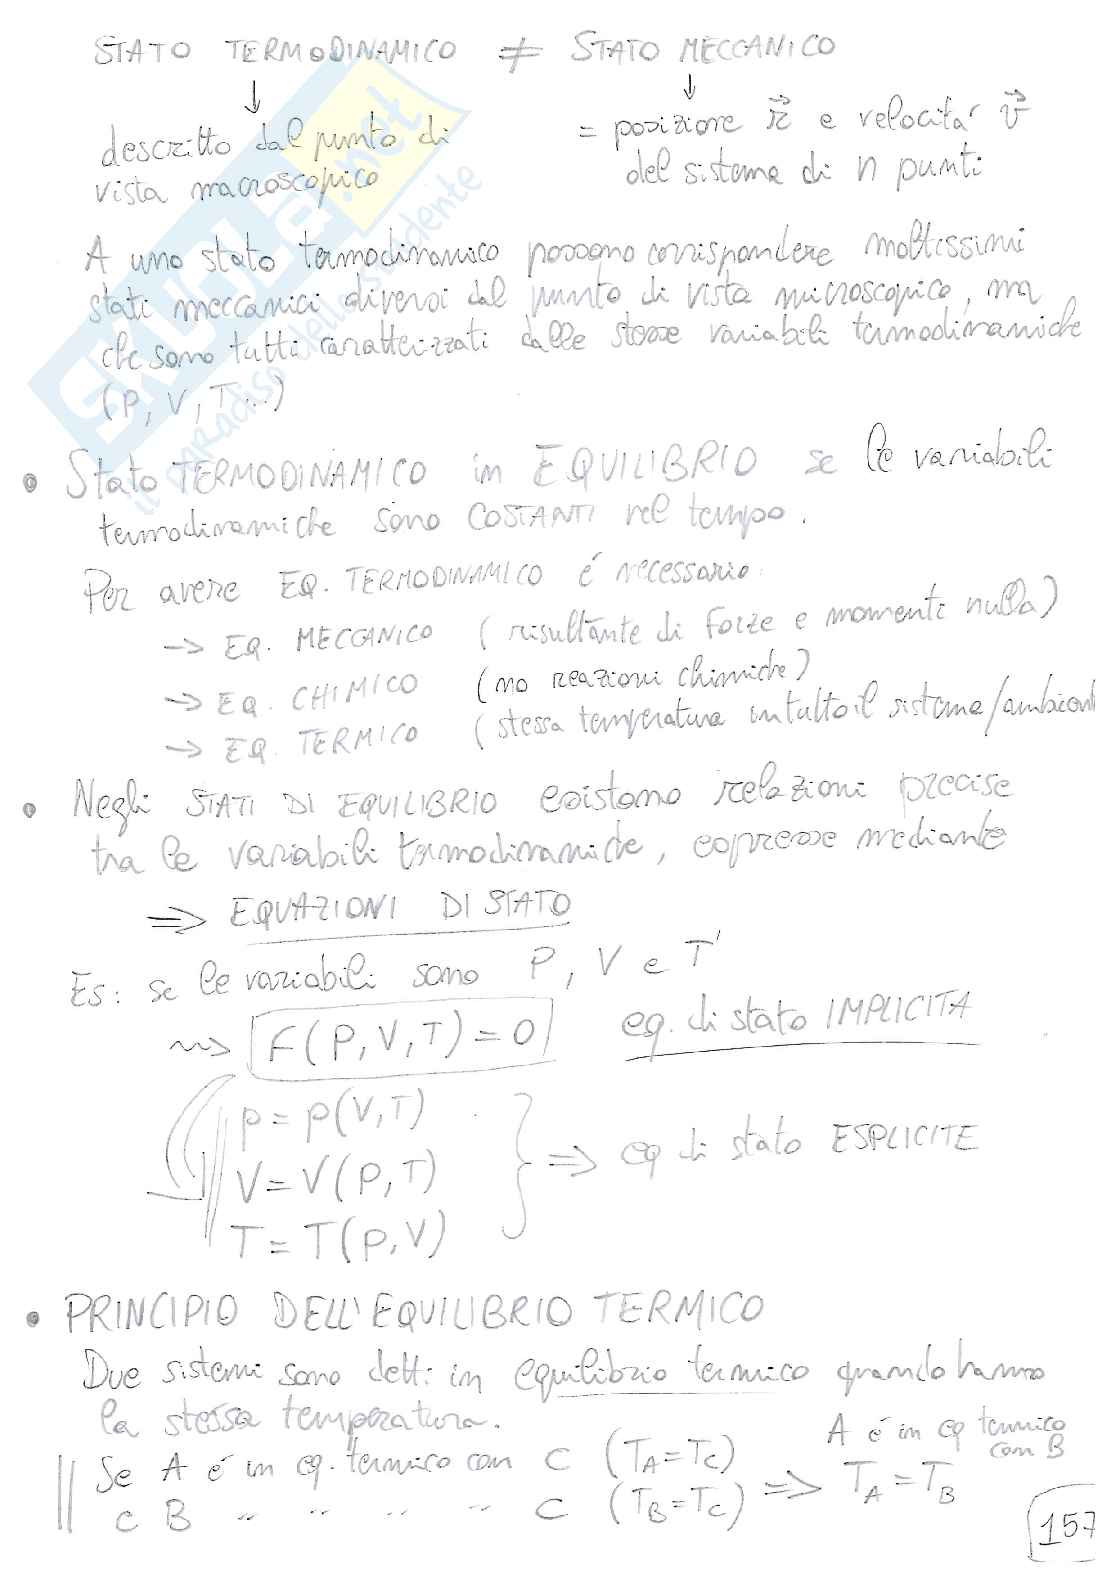 STATO TERMODINAMICO ≠ STATO MECCANICO
↓ ↓
descritto dal punto di
vista macroscopico
= posizione r⃗ e velocita' v⃗
del sistema di n punti
A uno stato termodinamico possono corrispondere moltissimi
stati meccanici diversi dal punto di vista microscopico, ma
che sono tutti caratterizzati dalle stesse variabili termodinamiche
(P, V, T...)
• Stato TERMODINAMICO in EQUILIBRIO se le variabili
termodinamiche sono COSTANTI nel tempo.
Per avere EQ. TERMODINAMICO é necessario:
→ EQ. MECCANICO (risultante di forze e momenti nulla)
→ EQ. CHIMICO (no reazioni chimiche)
→ EQ. TERMICO (stessa temperatura in tutto il sistema/ambient
• Negli STATI DI EQUILIBRIO esistono relazioni precise
tra le variabili termodinamiche, espresse mediante
⇒ EQUAZIONI DI STATO
Es: se le variabili sono P, V e T
⇝ F(P,V,T)=0 eq. di stato IMPLICITA
p = p(V,T)
V = V(P,T) } ⇒ eq di stato ESPLICITE
T = T(P,V)
• PRINCIPIO DELL'EQUILIBRIO TERMICO
Due sistemi sono detti in equilibrio termico quando hanno
la stessa temperatura.
Se A é in eq. termico con C (T_A=T_C)
e B " " " " C (T_B=T_C)
⇒ A é in eq termico
con B
T_A = T_B
157
SKUOLA.net
il paradiso dello studente